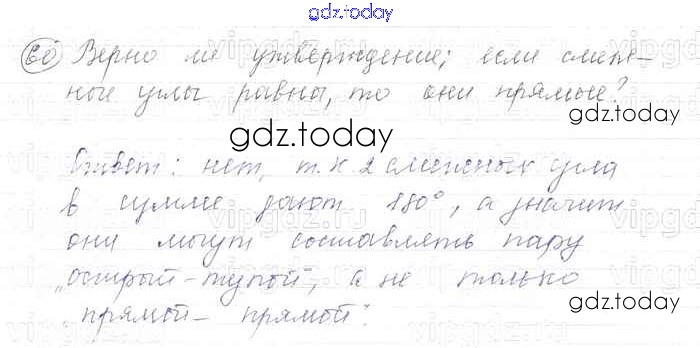 gdz.today
60 Верно ли утверждение; если смеж-
ные углы равны, то они прямые?
gdz.today
gdz.today
Ответ: нет, т.к 2 смежных угла
в сумме дают 180°, а значит
они могут составлять пару
„острый-тупой", а не только
gdz.today
„прямой- прямой".